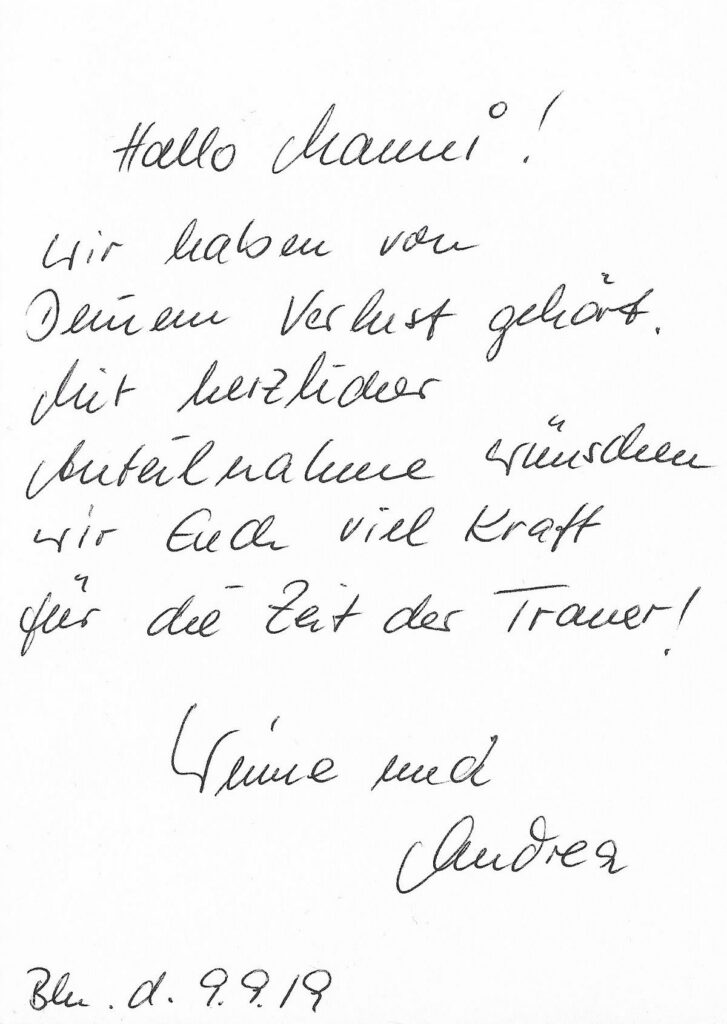 Hallo Manni!
wir haben von
Deinem Verlust gehört.
Mit herzlicher
Anteilnahme wünschen
wir Euch viel Kraft
für die Zeit der Trauer!
und
Andrea
Bln. d. 9.9.19